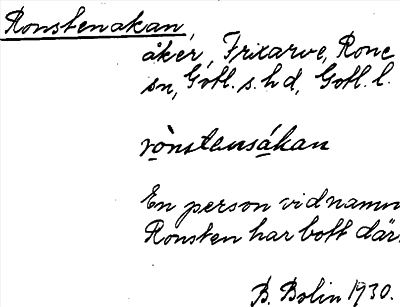 Ronstenakan,
åker, Frixarve, Rone
sn, Gotl. s. hd, Gotl. l.
rònstensákan
En person vid namn
Ronsten har bott där.
B. Bolin 1930.